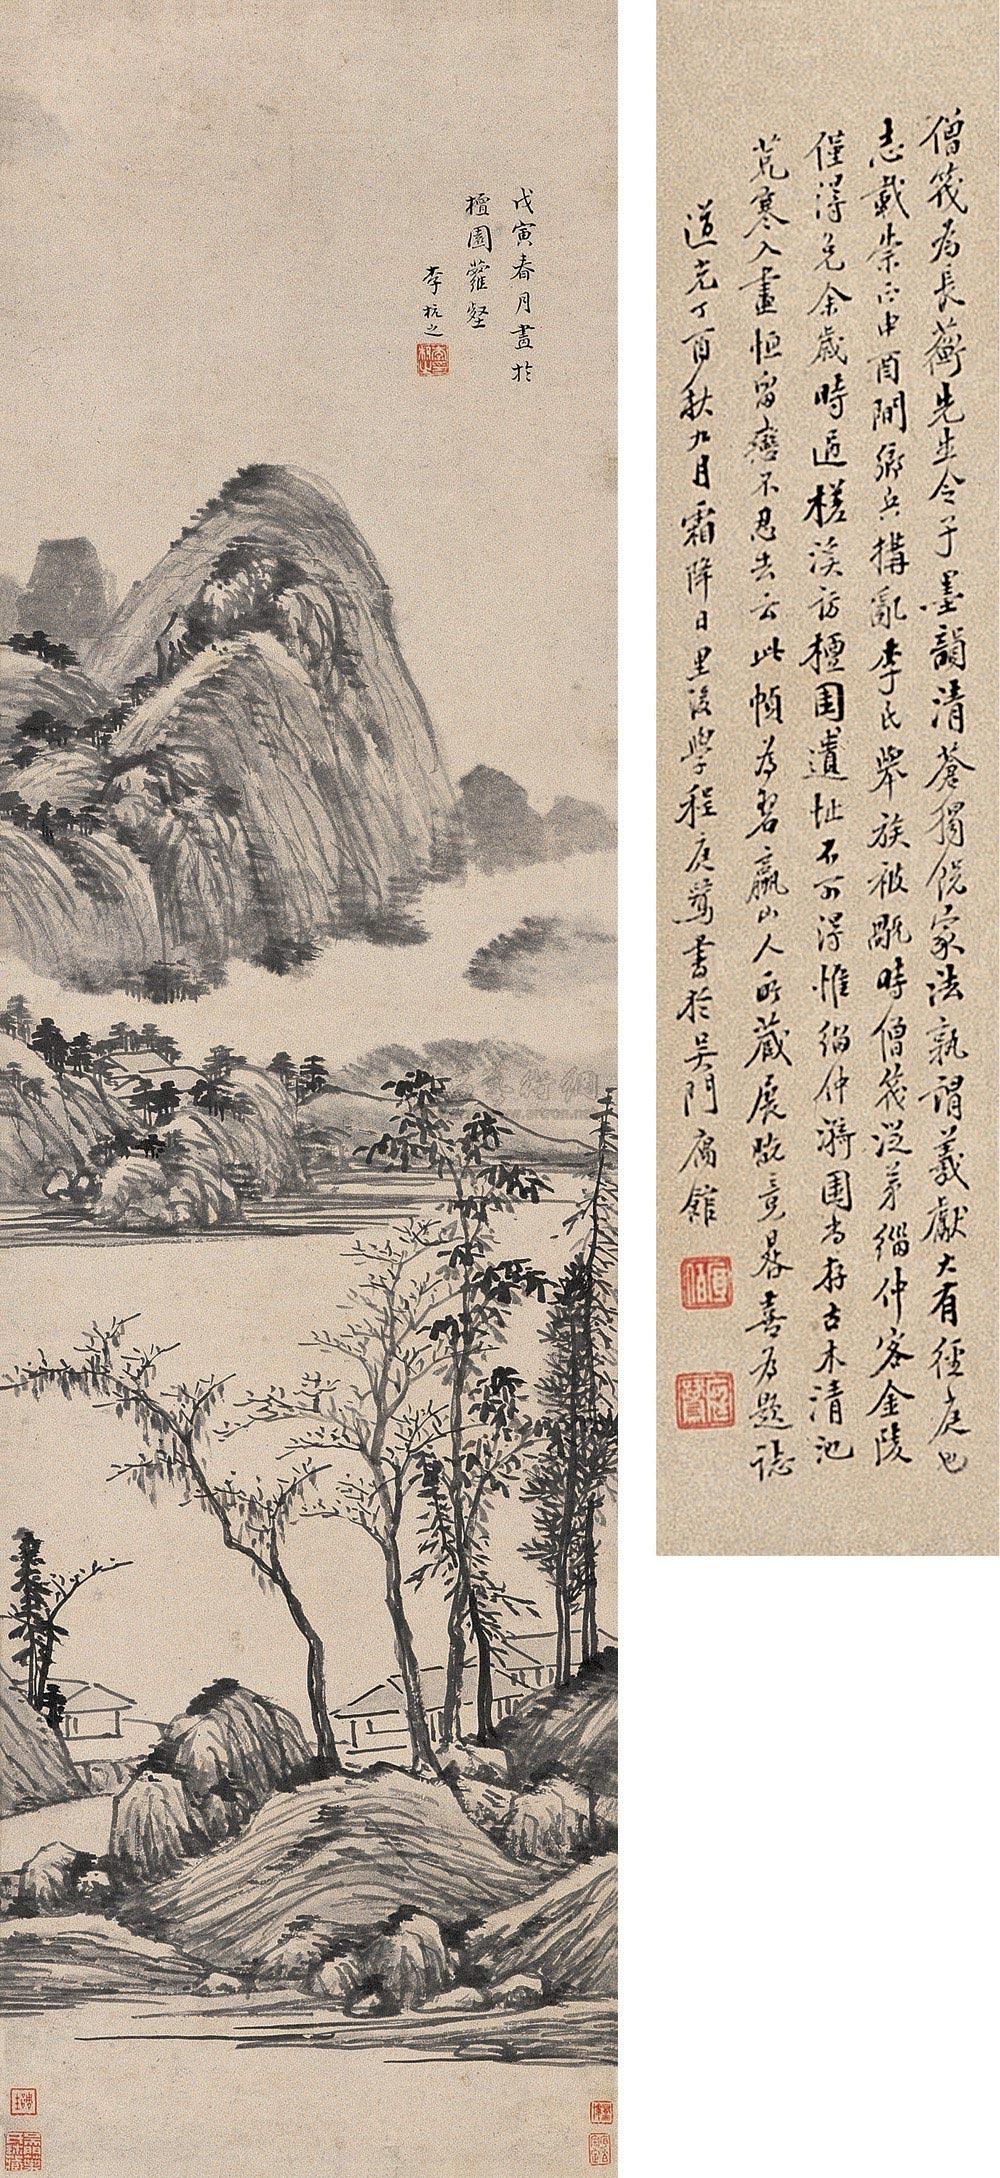 戊寅春月畫於
檀園蘿壑
李杭之
僧筏為長蘅先生令子墨韻清蒼獨饒家法孰謂羲獻大有徑庭也
志載崇正申酉間鄉兵搆亂李氏舉族被 時僧筏從弟緇仲客金陵
僅得免余歲時過槎溪訪檀園遺址不可得惟緇仲漪園尚存古木清池
荒寒入畫恒留戀不忍去云此幀為碧瀛山人所藏展 竟晷喜為題誌
道光丁酉秋九月霜降日里後學程庭鷺書於吳門寓館